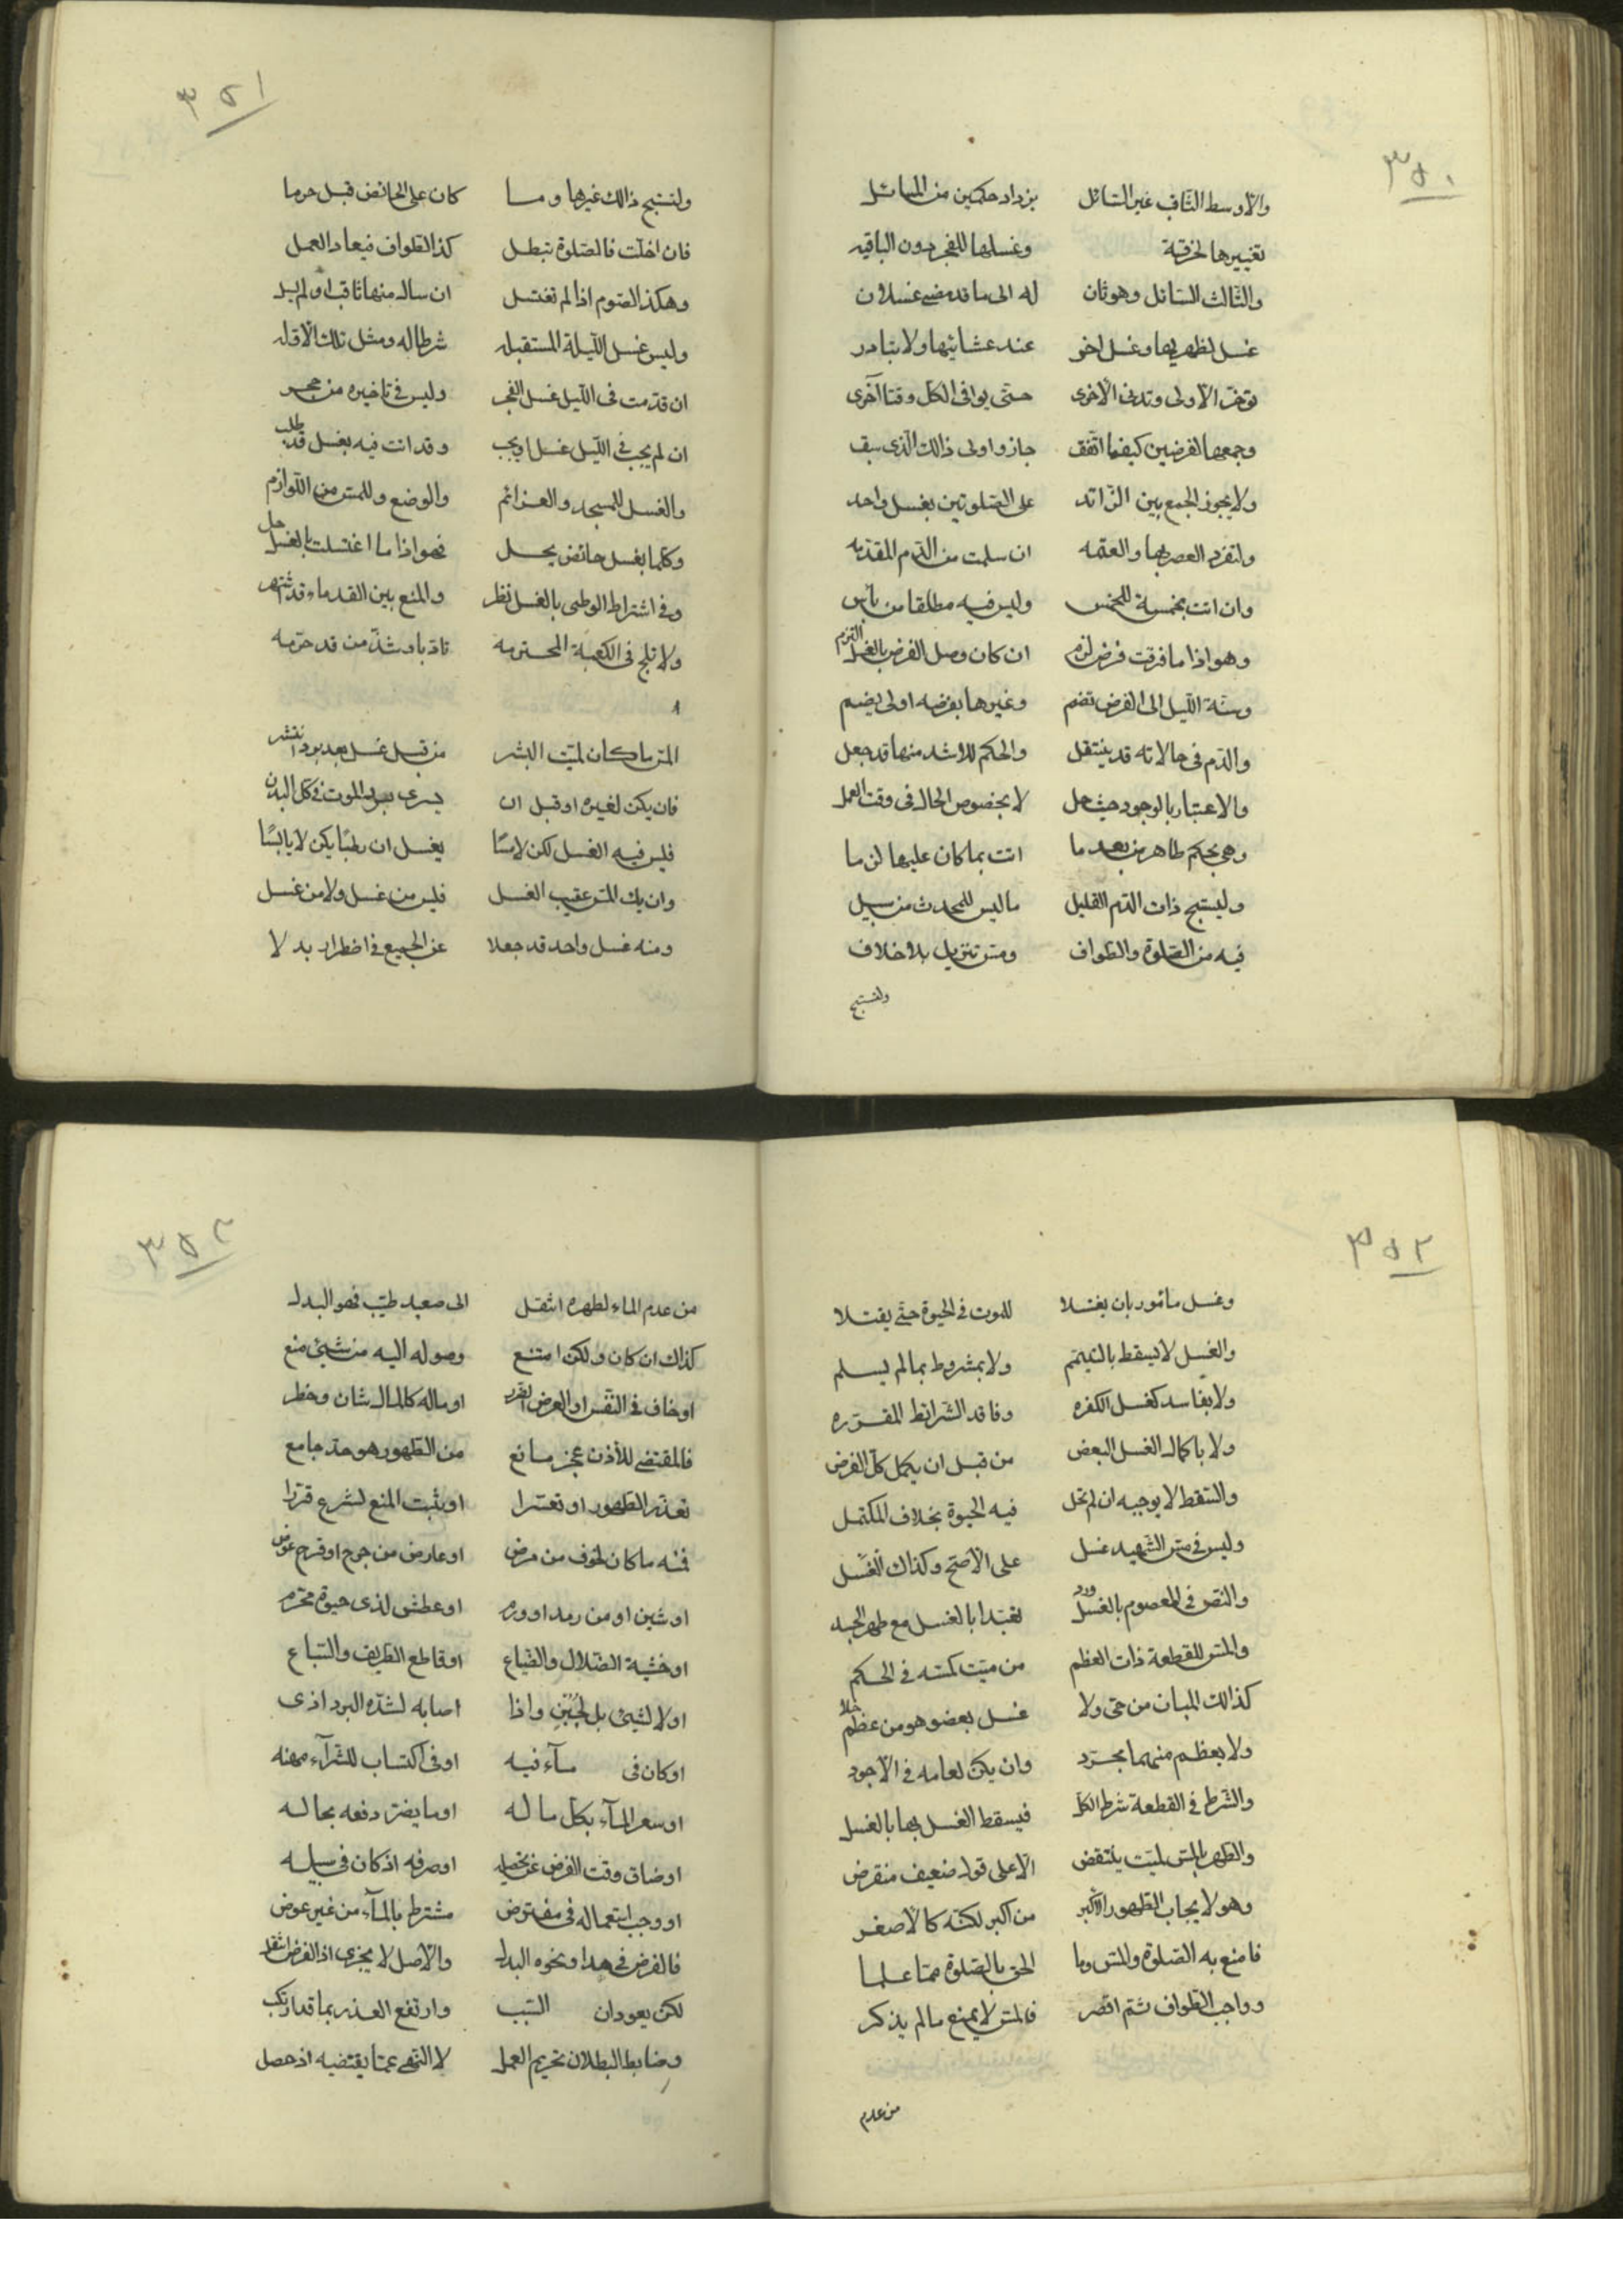 ٣٥٠
والأوسط الثاقب غير السائل يزداد حكمين من المسائل
تغييرها لخرقة وغسلها للفجر دون الباقيه
والثالث السائل وهو ثان له الى ما قد مضى غسلان
غسل لظهريها وغسل اخر عند عشائيها ولا تبادر
توخر الأولى وتدنى الأخرى حتى يوافى الكل وقتا اخرى
وجمعها الفرضين كيفما اتفق جاز واولى ذالك الذى سبق
ولا يجوز الجمع بين الزائد على الصلوتين بغسل واحد
ولتفرد العصر بها والعتمه ان سلمت من الدم المقدمه
وان اتت بخمسة للخمس وليس فيه مطلقا من باس
وهو اذا ما فرقت فرض لزم ان كان وصل الفرض بالغسل التزم
وسنة الليل الى الفرض تضم وغيرها بفرضه اولى يضم
والدم فى حالاته قد ينتقل والحكم للاشد منها قد جعل
والاعتبار بالوجود حيث حل لا بخصوص الحال فى وقت العمل
وهى بحكم طاهر من بعد ما اتت بما كان عليها لزما
وليستبح ذات الدم القليل ما ليس للمحدث من سبيل
فيه من الصلوة والطواف ومس تنزيل بلا خلاف
ولتستبح
٣٥١
ولتستبح ذالك غيرها وما كان على الحائض قبل حرما
فان اخلت فالصلوة تبطل كذا الطواف فيعاد العمل
وهكذا الصوم اذا لم تغتسل ان سال منها ثاقبا او لم يسل
وليس غسل الليلة المستقبله شرطا له ومثل تلك الأوله
ان قدمت فى الليل غسل الفجر وليس فى تاخيره من حجر
ان لم يجب فى الليل غسل او يجب وقد اتت فيه بغسل قد طلب
والغسل للمسجد والعزائم والوضع وللمس من اللوازم
وكلما بغسل حائض يحل فهو اذا ما اغتسلت بالغسل حل
وفى اشتراط الوطى بالغسل نظر والمنع بين القدماء قد اشتهر
ولا تلج فى الكعبة المحترمه تادبا وشذ من قد حرمه
المس ما كان لميت البشر من قبل غسل بعد برد انتشر
فان يكن لغيره او قبل ان يسرى برد الموت فى كل البدن
فليس فيه الغسل لكن لامسا يغسل ان رطبا يكن لا يابسا
وان يك المس عقيب الغسل فليس من غسل ولا من غسل
ومنه غسل واحد قد جعلا عن الجميع فى اضطرار بدلا
٣٥٢
وغسل مأمور بان يغتسلا للموت فى الحيوة حتى يقتلا
والغسل لا يسقط بالتيمم ولا بمشروط بما لم يسلم
ولا بفاسد كغسل الكفره وفاقد الشرائط المقرره
ولا باكمال الغسل البعض من قبل ان يكمل كل الفرض
والسقط لا يوجبه ان لم تحل فيه الحيوة بخلاف المكتمل
وليس فى مس الشهيد غسل على الأصح وكذاك الغسل
والنص فى المعصوم بالغسل ورد تعبدا بالغسل مع طهر الجسد
والمس للقطعة ذات العظم من ميت كمسه فى الحكم
كذالك المبان من حى ولا غسل بعضو هو من عظم خلا
ولا بعظم منهما مجرد وان يكن لعامه فى الأجود
والشرط فى القطعة شرط الكل فيسقط الغسل بها بالغسل
والطهر بالمس لميت ينتقض الا على قول ضعيف منقرض
وهو لايجاب الطهور الأكبر من اكبر لكنه كالأصغر
فامنع به الصلوة والمس وما الحق بالصلوة مما علما
وواجب الطواف ثم اقصر فالمس لا يمنع ما لم يذكر
من عدم
٣٥٣
من عدم الماء لطهره انتقل الى صعيد طيب فهو البدل
كذاك ان كان ولكن امتنع وصوله اليه من شيئ منع
او خاف فى النفس او العرض الضرر او ماله كالمال شان وخطر
فالمقتضى للأذن عجز مانع من الطهور هو حد جامع
تعذر الطهور او تعسرا او يثبت المنع لشرع قررا
فمنه ما كان لخوف من مرض او عارض من جرح او قرح عرض
او شين او من رمد او ورم او عطش لذى حيوة محترم
او خشية الضلال والضياع او قاطع الطريف والسباع
او لا لشيئ بل لجبن واذا اصابه لشدة البرد اذى
او كان فى مسآء فيه او فى اكتساب للشرآء مهنه
او سعر المآء بكل ماله او ما يضر دفعه بحاله
او ضاق وقت الفرض عن تحصيله او صرفه اذ كان فى سبيله
او وجب استعماله فى مفترض مشترط بالمآء من غير عوض
فالفرض فى هذا ونحوه البدل والأصل لا يجزى اذ الفرض انتقل
لكن يعودان السبب وارتفع العذر بما قد ارتكب
وضابط البطلان تحريم العمل لا النهى عما يقتضيه اذ حصل